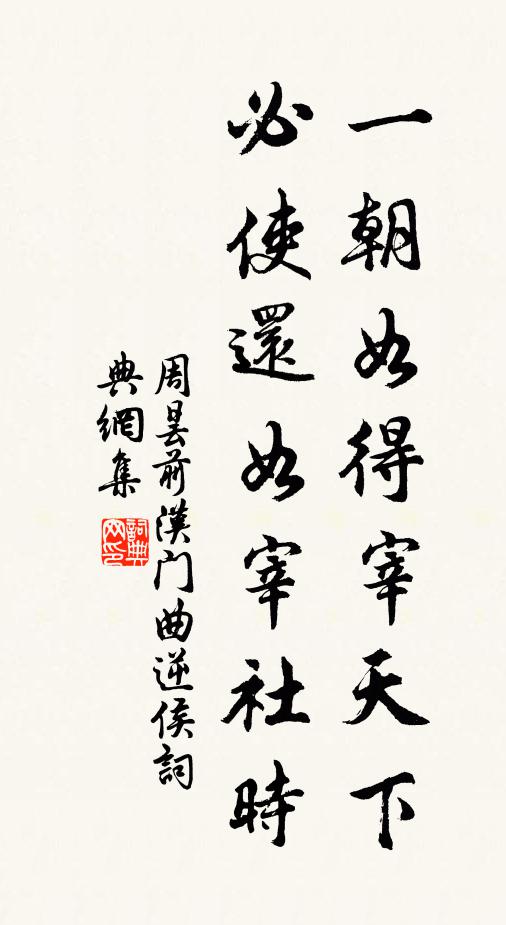 一朝如得宰天下
必使還如宰社時
周曇前漢門曲逆侯詞
典網集
詞典网印